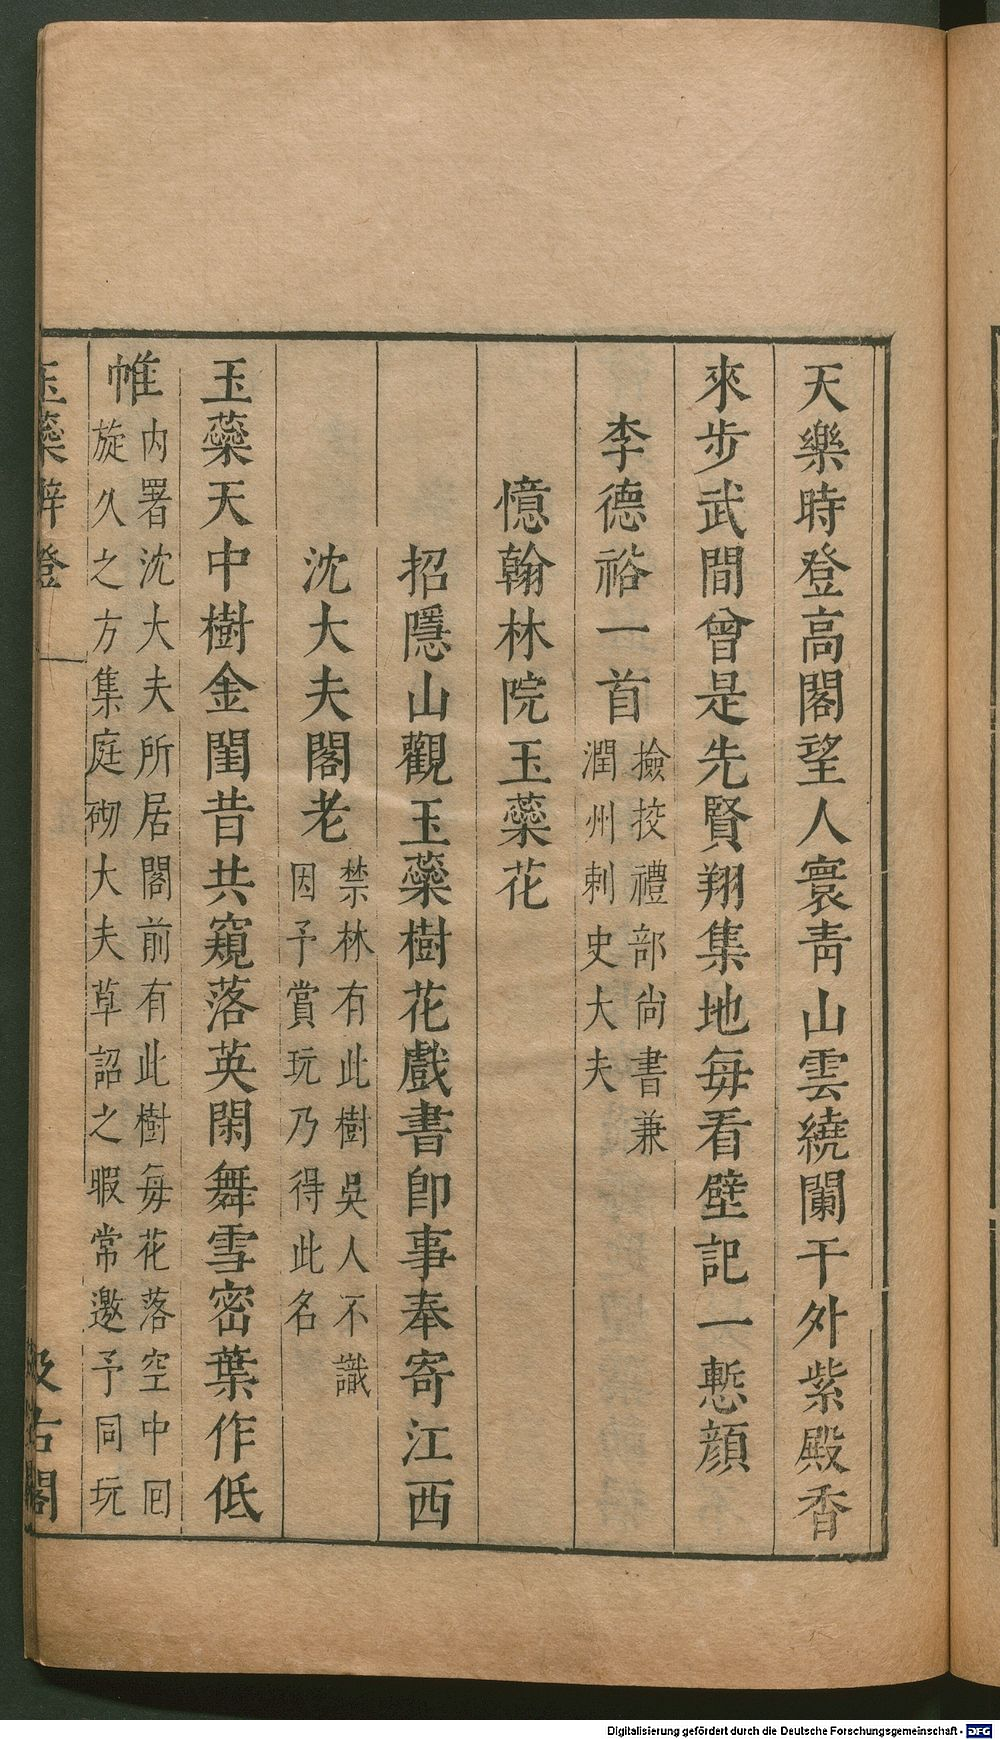 天樂時登高閣望人寰靑山雲繞闌干外紫殿香
來步武間曾是先賢翔集地每看壁記一慙顔
李德裕一首
撿挍禮部尙書兼
潤州刺史大夫
憶翰林院玉蘂花
招隱山觀玉蘂樹花戲書卽事奉寄江西
沈大夫閣老
禁林有此樹吳人不識
因予賞玩乃得此名
玉蘂天中樹金閨昔共窺落英閑舞雪密葉作低
帷
内署沈大夫所居閣前有此樹每花落空中囘
旋久之方集庭砌大夫草詔之暇常邀予同玩
玉蘂辨證
一
汲古閣
Digitalisierung gefördert durch die Deutsche Forschungsgemeinschaft - DFG